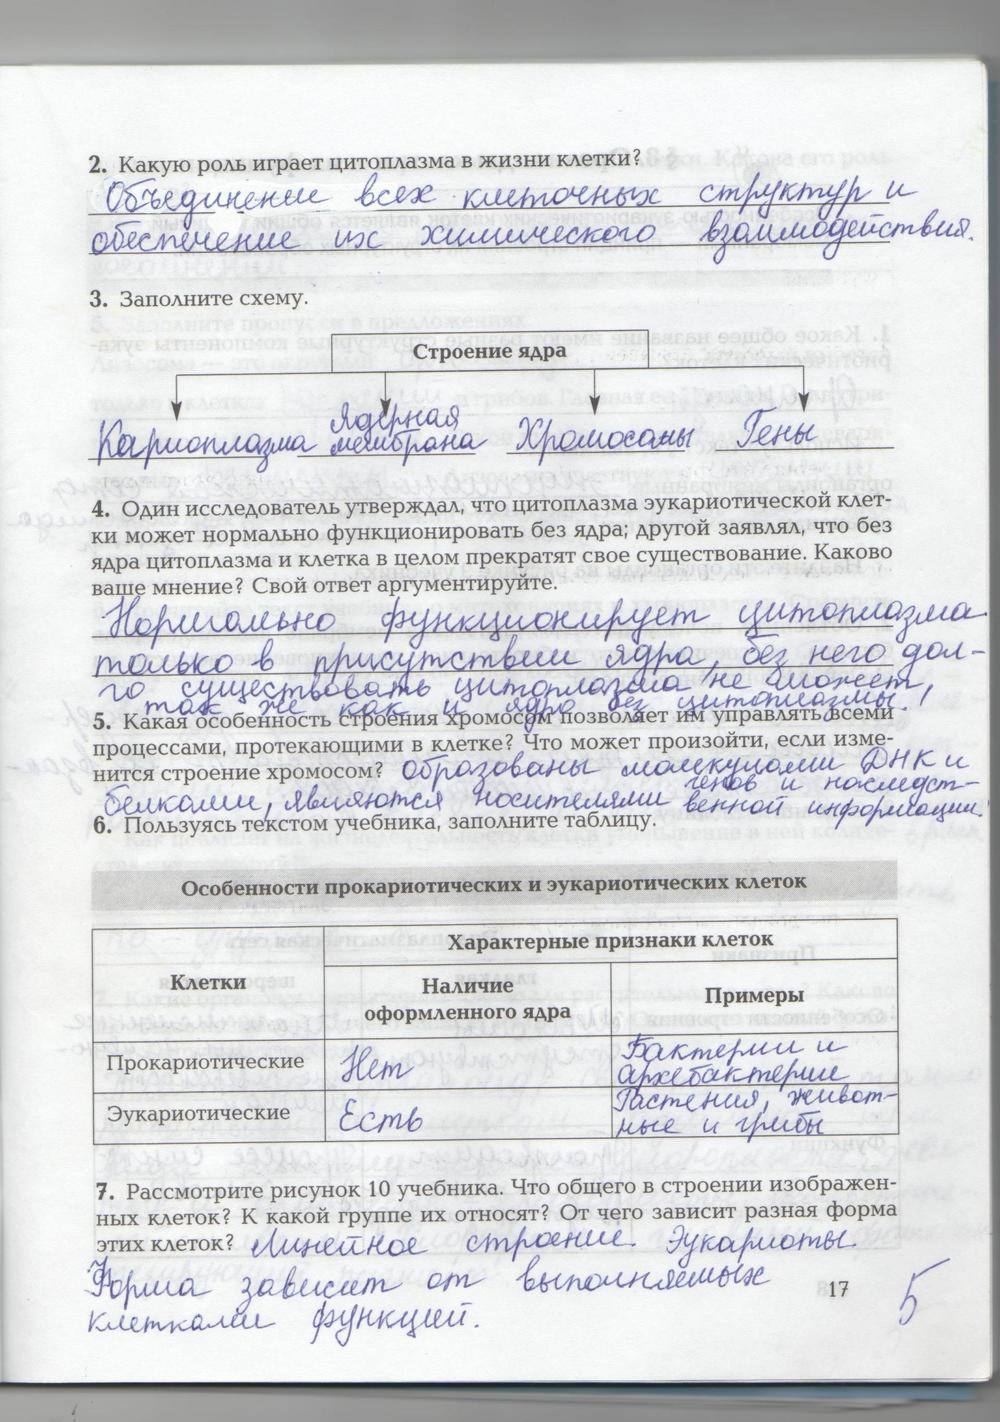 2. Какую роль играет цитоплазма в жизни клетки?
Объединение всех клеточных структур и
обеспечение их химического взаимодействия.
3. Заполните схему.
Строение ядра
Кариоплазма Ядерная мембрана Хромосомы Гены
4. Один исследователь утверждал, что цитоплазма эукариотической клет-
ки может нормально функционировать без ядра; другой заявлял, что без
ядра цитоплазма и клетка в целом прекратят свое существование. Каково
ваше мнение? Свой ответ аргументируйте.
Нормально функционирует цитоплазма
только в присутствии ядра, без него дол-
го существовать цитоплазма не может,
так же как и ядро без цитоплазмы.
5. Какая особенность строения хромосом позволяет им управлять всеми
процессами, протекающими в клетке? Что может произойти, если изме-
нится строение хромосом? образованы молекулами ДНК и
белками, являются носителями генов и наследст-
венной информации.
6. Пользуясь текстом учебника, заполните таблицу.
Особенности прокариотических и эукариотических клеток
Клетки
Характерные признаки клеток
Наличие
оформленного ядра
Примеры
Прокариотические
Нет
Бактерии и
архебактерии
Эукариотические
Есть
Растения, живот-
ные и грибы
7. Рассмотрите рисунок 10 учебника. Что общего в строении изображен-
ных клеток? К какой группе их относят? От чего зависит разная форма
этих клеток? Линейное строение. Эукариоты.
Форма зависит от выполняемых
клетками функций.
17
5